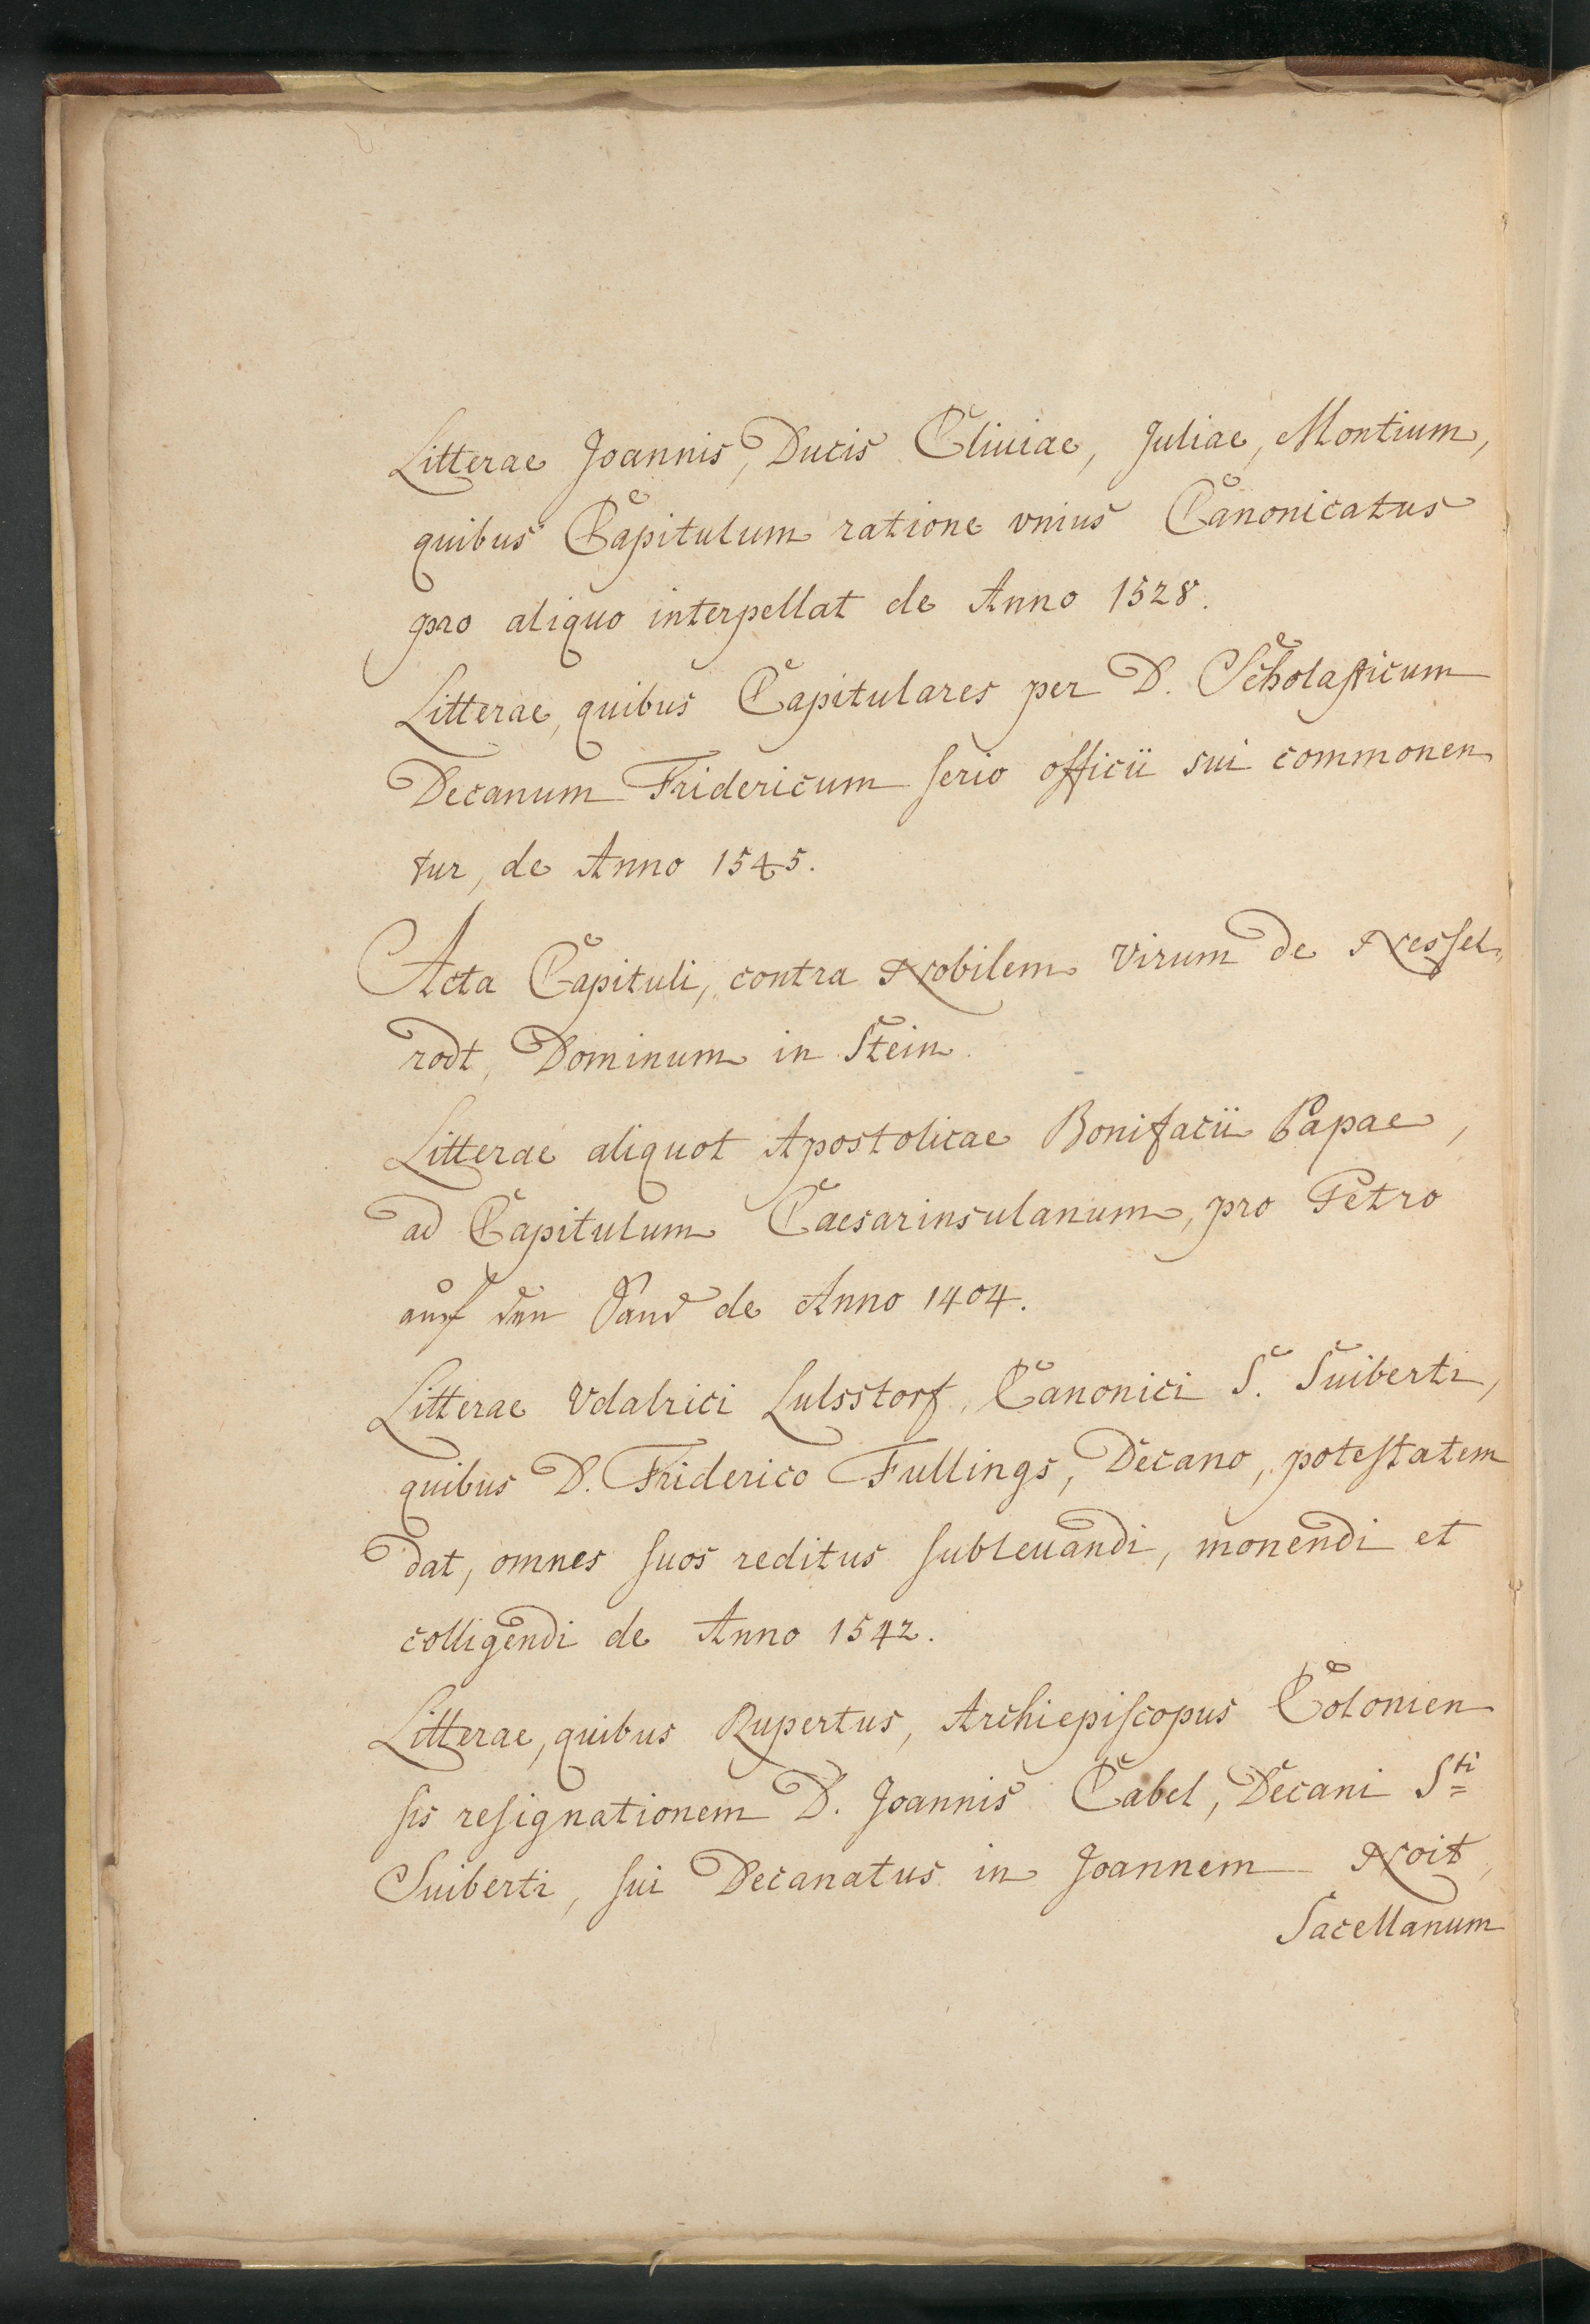 Litterae Joannis, Ducis Cliuiae, Juliae, Montium,
quibus Capitulum ratione vnius Canonicatus
pro aliquo interpellat de Anno 1528.
Litterae, quibus Capitulares per D. Scholaſticum
Decanum Fridericum ſerio officii sui commonen
tur, de Anno 1545.
Acta Capituli, contra Nobilem Virum de Nesſel,,
rodt, Dominum in Stein.
Litterae aliquot Apostolicae Bonifacii Papae,
ad Capitulum Caesarinsulanum, pro Petro
auf den Sand de Anno 1404.
Litterae Vdalrici Lulsstorf, Canonici S. Suiberti,
quibus D. Friderico Fullings, Decano, poteſtatem
dat, omnes ſuos reditus ſubleuandi, monendi et
colligendi de Anno 1542.
Litterae, quibus Rupertus, Archiepiſcopus Colonien
ſis reſignationem D. Joannis Cabel, Decani Sti
Suiberti, ſui Decanatus in Joannem Noit,
Sacellanum